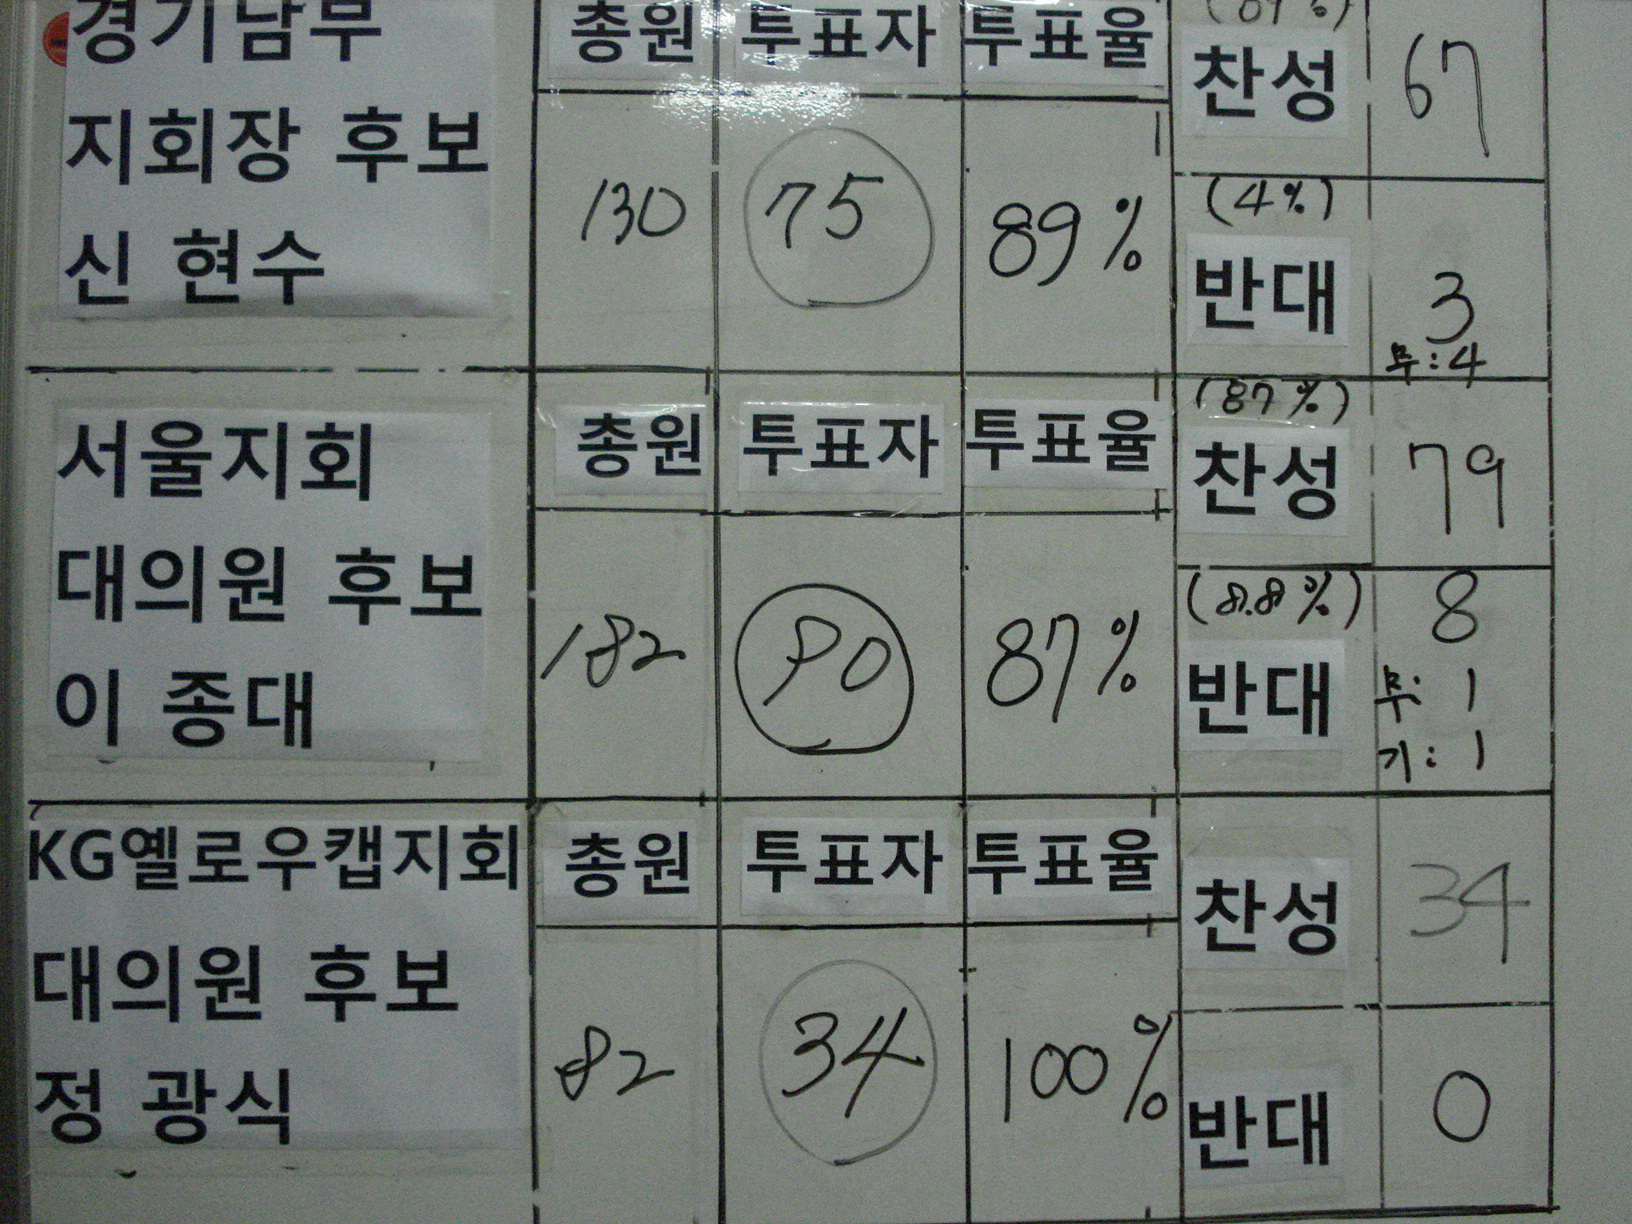 경기남부
지회장 후보
신 현수
총원 투표자 투표율
130 75 89%
(89%)
찬성 67
(4%)
반대 3
무:4
서울지회
대의원 후보
이 종대
총원 투표자 투표율
182 90 87%
(87%)
찬성 79
(8.8%)
반대 8
무: 1
기: 1
KG옐로우캡지회
대의원 후보
정 광식
총원 투표자 투표율
82 34 100%
찬성 34
반대 0